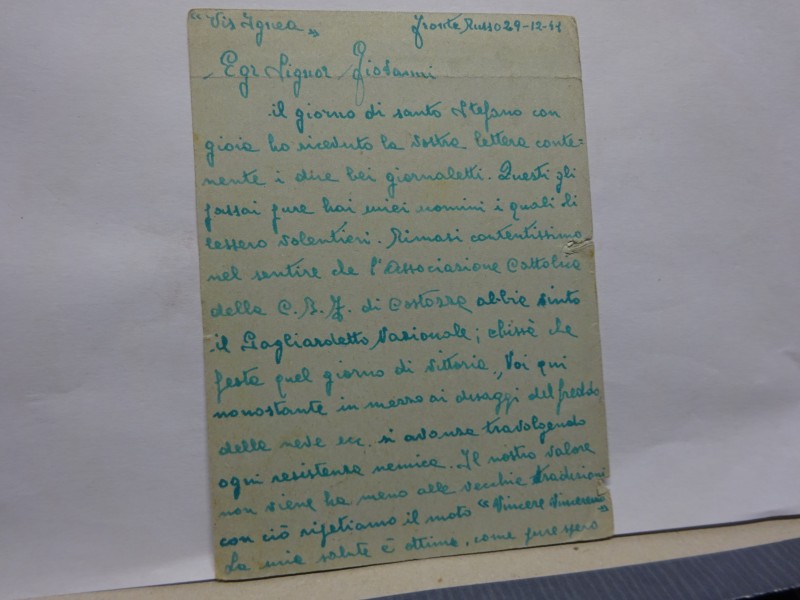 "Vis Ignea" fronte Russo 29-12-41
Egr Signor Giovanni
il giorno di santo Stefano con
gioia ho ricevuto la vostra lettera conte=
nente i due bei giornaletti. Questi gli
passai pure hai miei uomini i quali li
lessero volentieri. Rimasi contentissimo
nel sentire che l'Associazione Cattolica
della C.B.J. di Costozza abbia vinto
il Gagliardetto Nazionale; chissà che
festa quel giorno di vittoria. Noi qui
nonostante in mezzo ai disaggi del freddo
della neve ecc. si avanza travolgendo
ogni resistenza nemica. Il nostro valore
non viene ha meno alle vecchie tradizioni
con ciò ripetiamo il moto "Vincere Vinceremo"
La mia salute è ottima, come pure spero